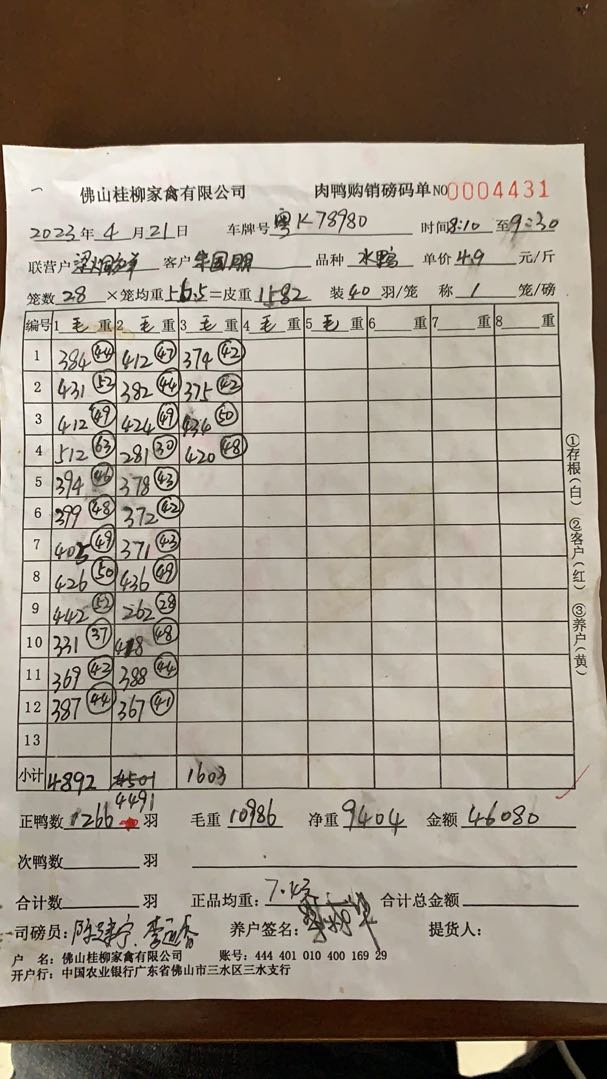 佛山桂柳家禽有限公司 肉鸭购销磅码单 NO 0004431
2023年 4 月 21 日 车牌号 粤K78980 时间8:10 至9:30
联营户 客户 品种 水鸭 单价 4.9 元/斤
笼数 28 ×笼均重 56.5 =皮重 1582 装 40 羽/笼 称 1 笼/磅
编号 1 毛 重 2 毛 重 3 毛 重 4 毛 重 5 毛 重 6 重 7 重 8 重
1 384 44 412 47 374 42
2 431 52 382 44 375 42
3 412 49 424 49 434 50
4 512 63 281 30 420 48
5 394 46 378 43
6 399 48 372 42
7 405 49 371 43
8 426 50 436 49
9 442 52 262 28
10 331 37 418 48
11 369 42 388 44
12 387 44 367 41
13
小计 4892 4501 1603
4491
正鸭数 1266 羽 毛重 10986 净重 9404 金额 46080
次鸭数 羽
合计数 羽 正品均重: 7.43 合计总金额
司磅员: 养户签名: 提货人:
户 名: 佛山桂柳家禽有限公司 账号: 444 401 010 400 169 29
开户行: 中国农业银行广东省佛山市三水区三水支行
①存根(白) ②客户(红) ③养户(黄)